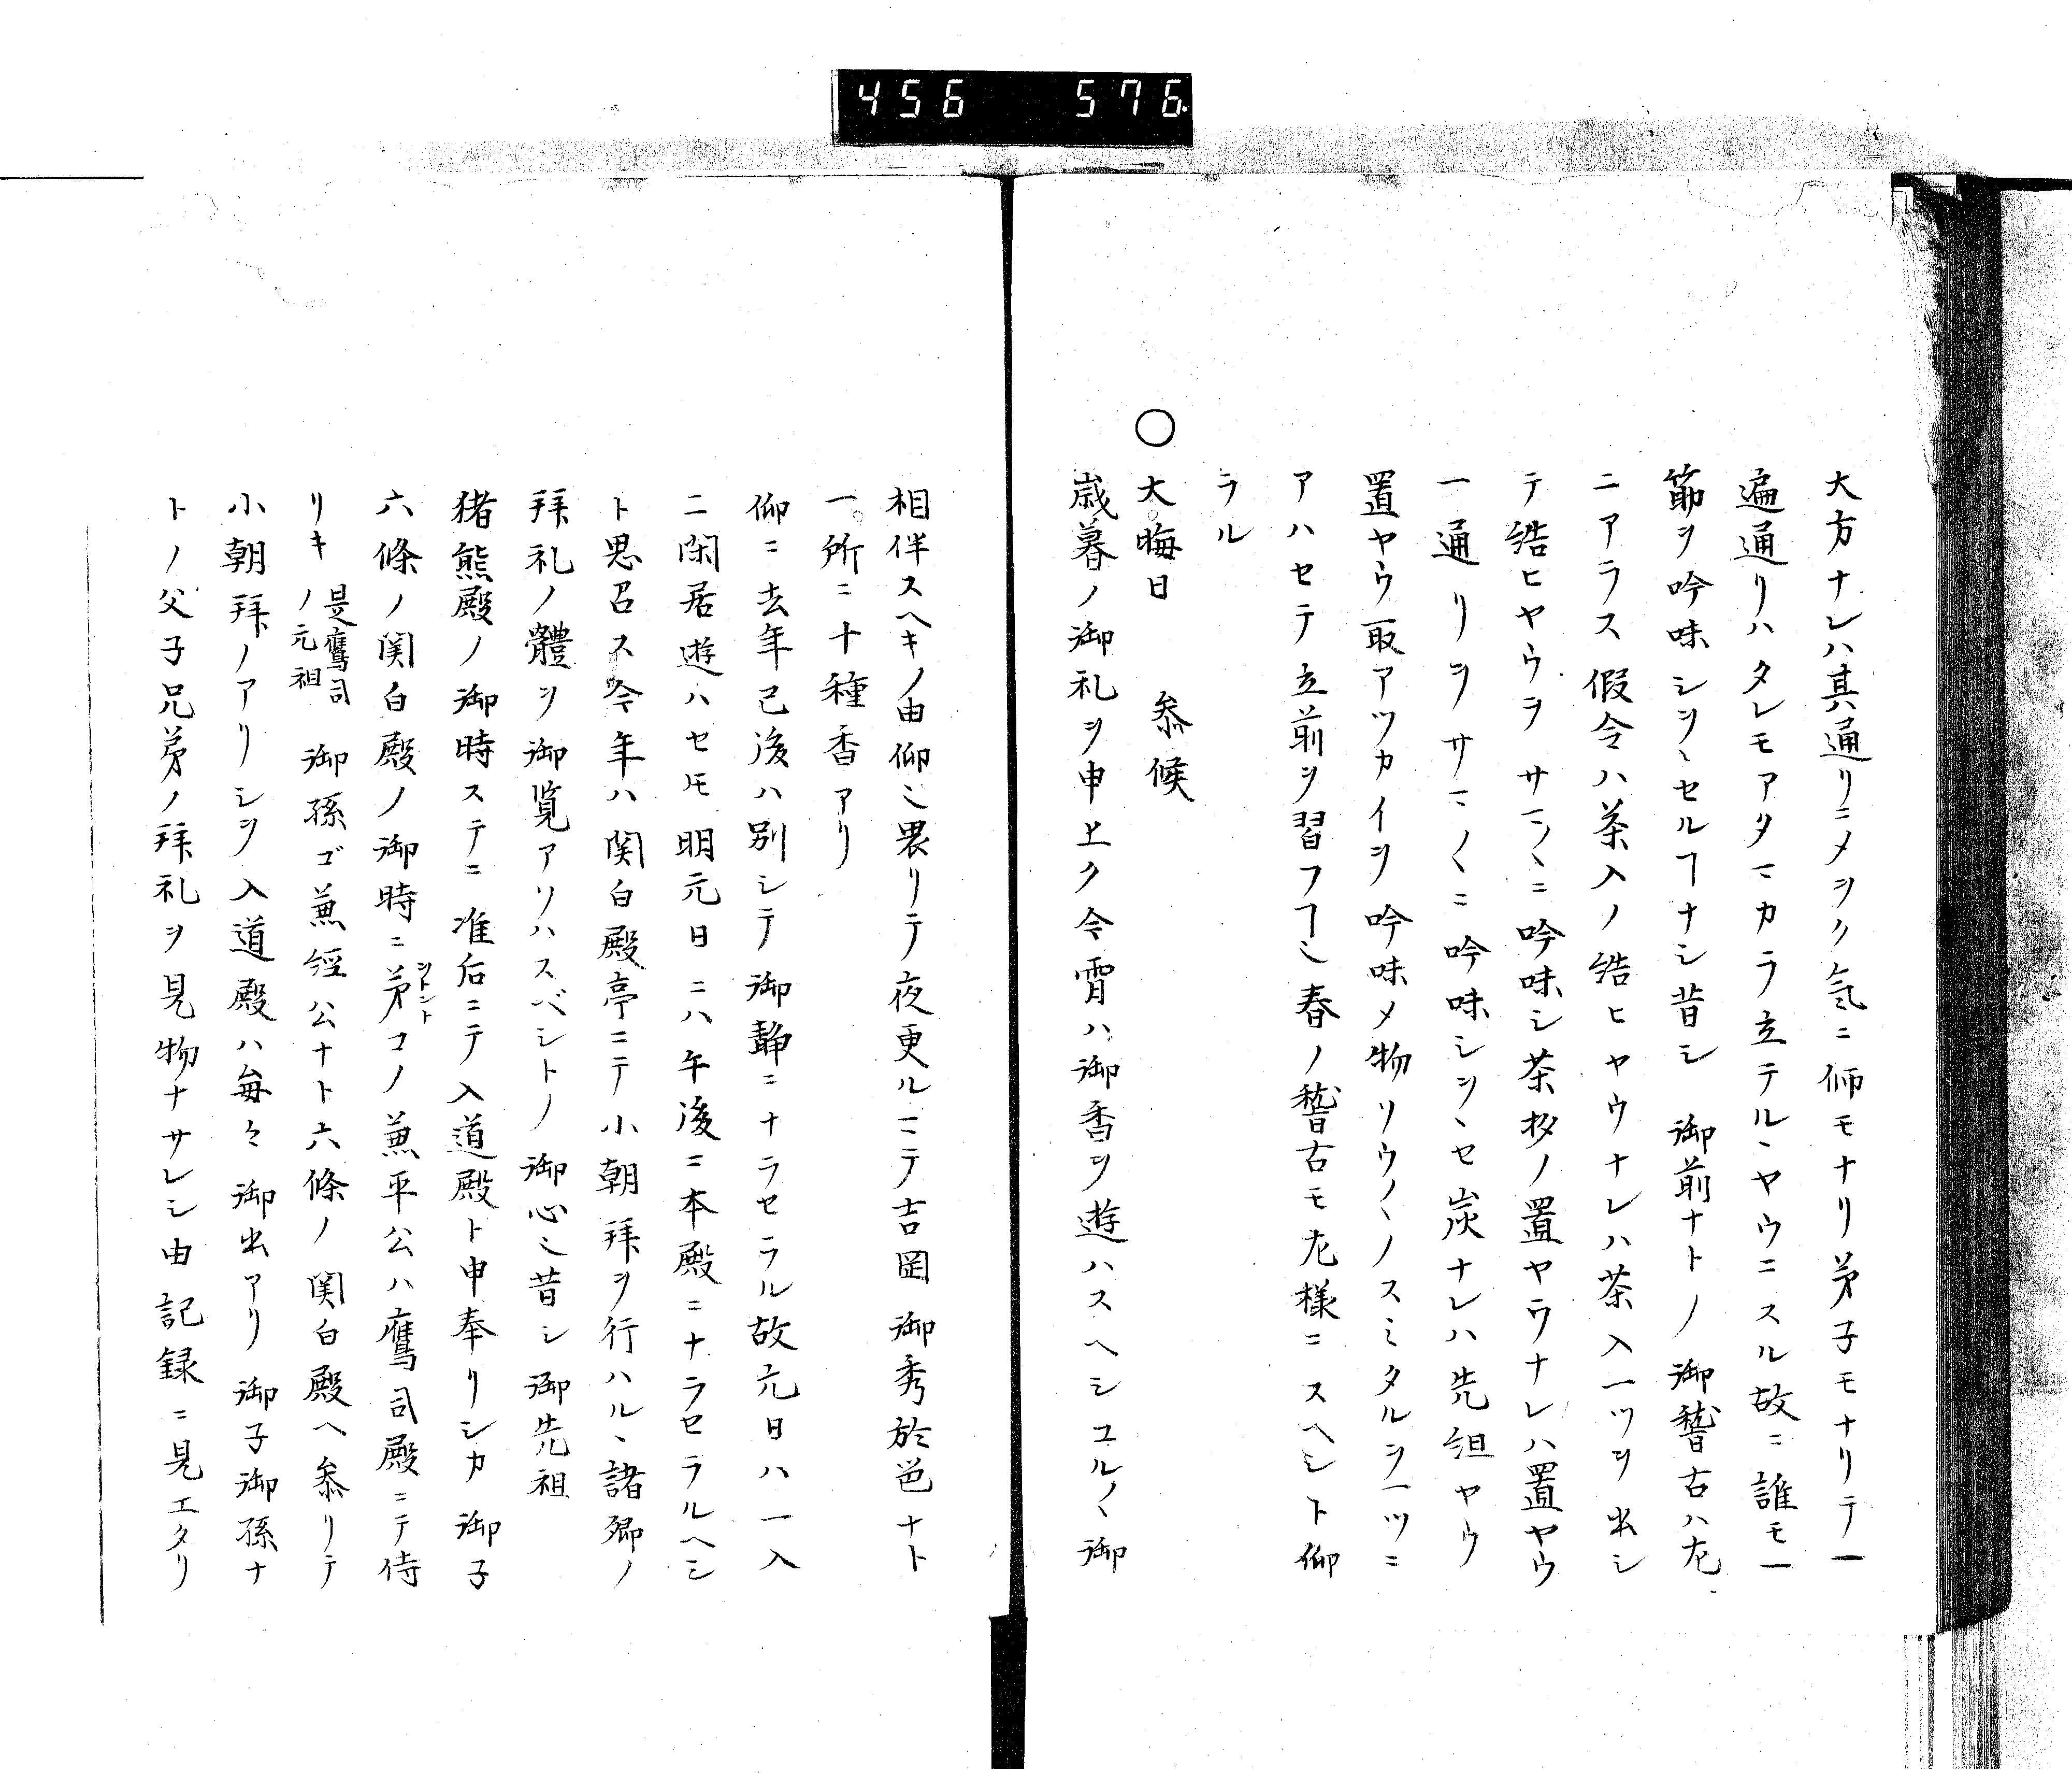 456 576
大方ナレハ其通リニメヲク気ニ師モナリ弟子モナリテ一
遍通リハタレモアタマカラ立テルヽヤウニスル故ニ誰モ一
節ヲ吟味シヲヽセルヿナシ昔シ 御前ナトノ御稽古ハ左
ニアラス假令ハ茶入ノ結ヒヤウナレハ茶入一ツヲ出シ
テ結ヒヤウヲサマ〳〵ニ吟味シ茶杓ノ置ヤウナレハ置ヤウ
一通リヲサマ〳〵ニ吟味シヲヽセ炭ナレハ先組ヤウ
置ヤウ取アツカイヲ吟味メ物ソウ〳〵ノスミタルヲ一ツニ
アハセテ立前ヲ習フヿ也春ノ稽古モ左様ニスヘシト仰
ラル
○大晦日 参候
歳暮ノ御礼ヲ申上ク今霄ハ御香ヲ遊ハスヘシユル〳〵御
相伴スヘキノ由仰也畏リテ夜更ルマテ吉岡御秀於邑ナト
一所ニ十種香アリ
仰ニ去年已後ハ別シテ御静ニナラセラル故元日ハ一入
ニ閑居遊ハセ𪜈明元日ニハ午後ニ本殿ニナラセラルヘシ
ト思召ス今年ハ関白殿亭ニテ小朝拜ヲ行ハルヽ諸卿ノ
拜礼ノ體ヲ御覧アソハスベシトノ御心也昔シ御先祖
猪熊殿ノ御時ステニ准后ニテ入道殿ト申奉リシカ御子
六條ノ関白殿ノ御時ニ弟コノ兼平公ハ鷹司殿ニテ侍
シトント
リキ 是鷹司ノ元祖 御孫ゴ兼經公ナト六條ノ関白殿ヘ参リテ
小朝拜ノアリシヲ入道殿ハ毎々御出アリ御子御孫ナ
トノ父子兄弟ノ拜礼ヲ見物ナサレシ由記録ニ見エタリ